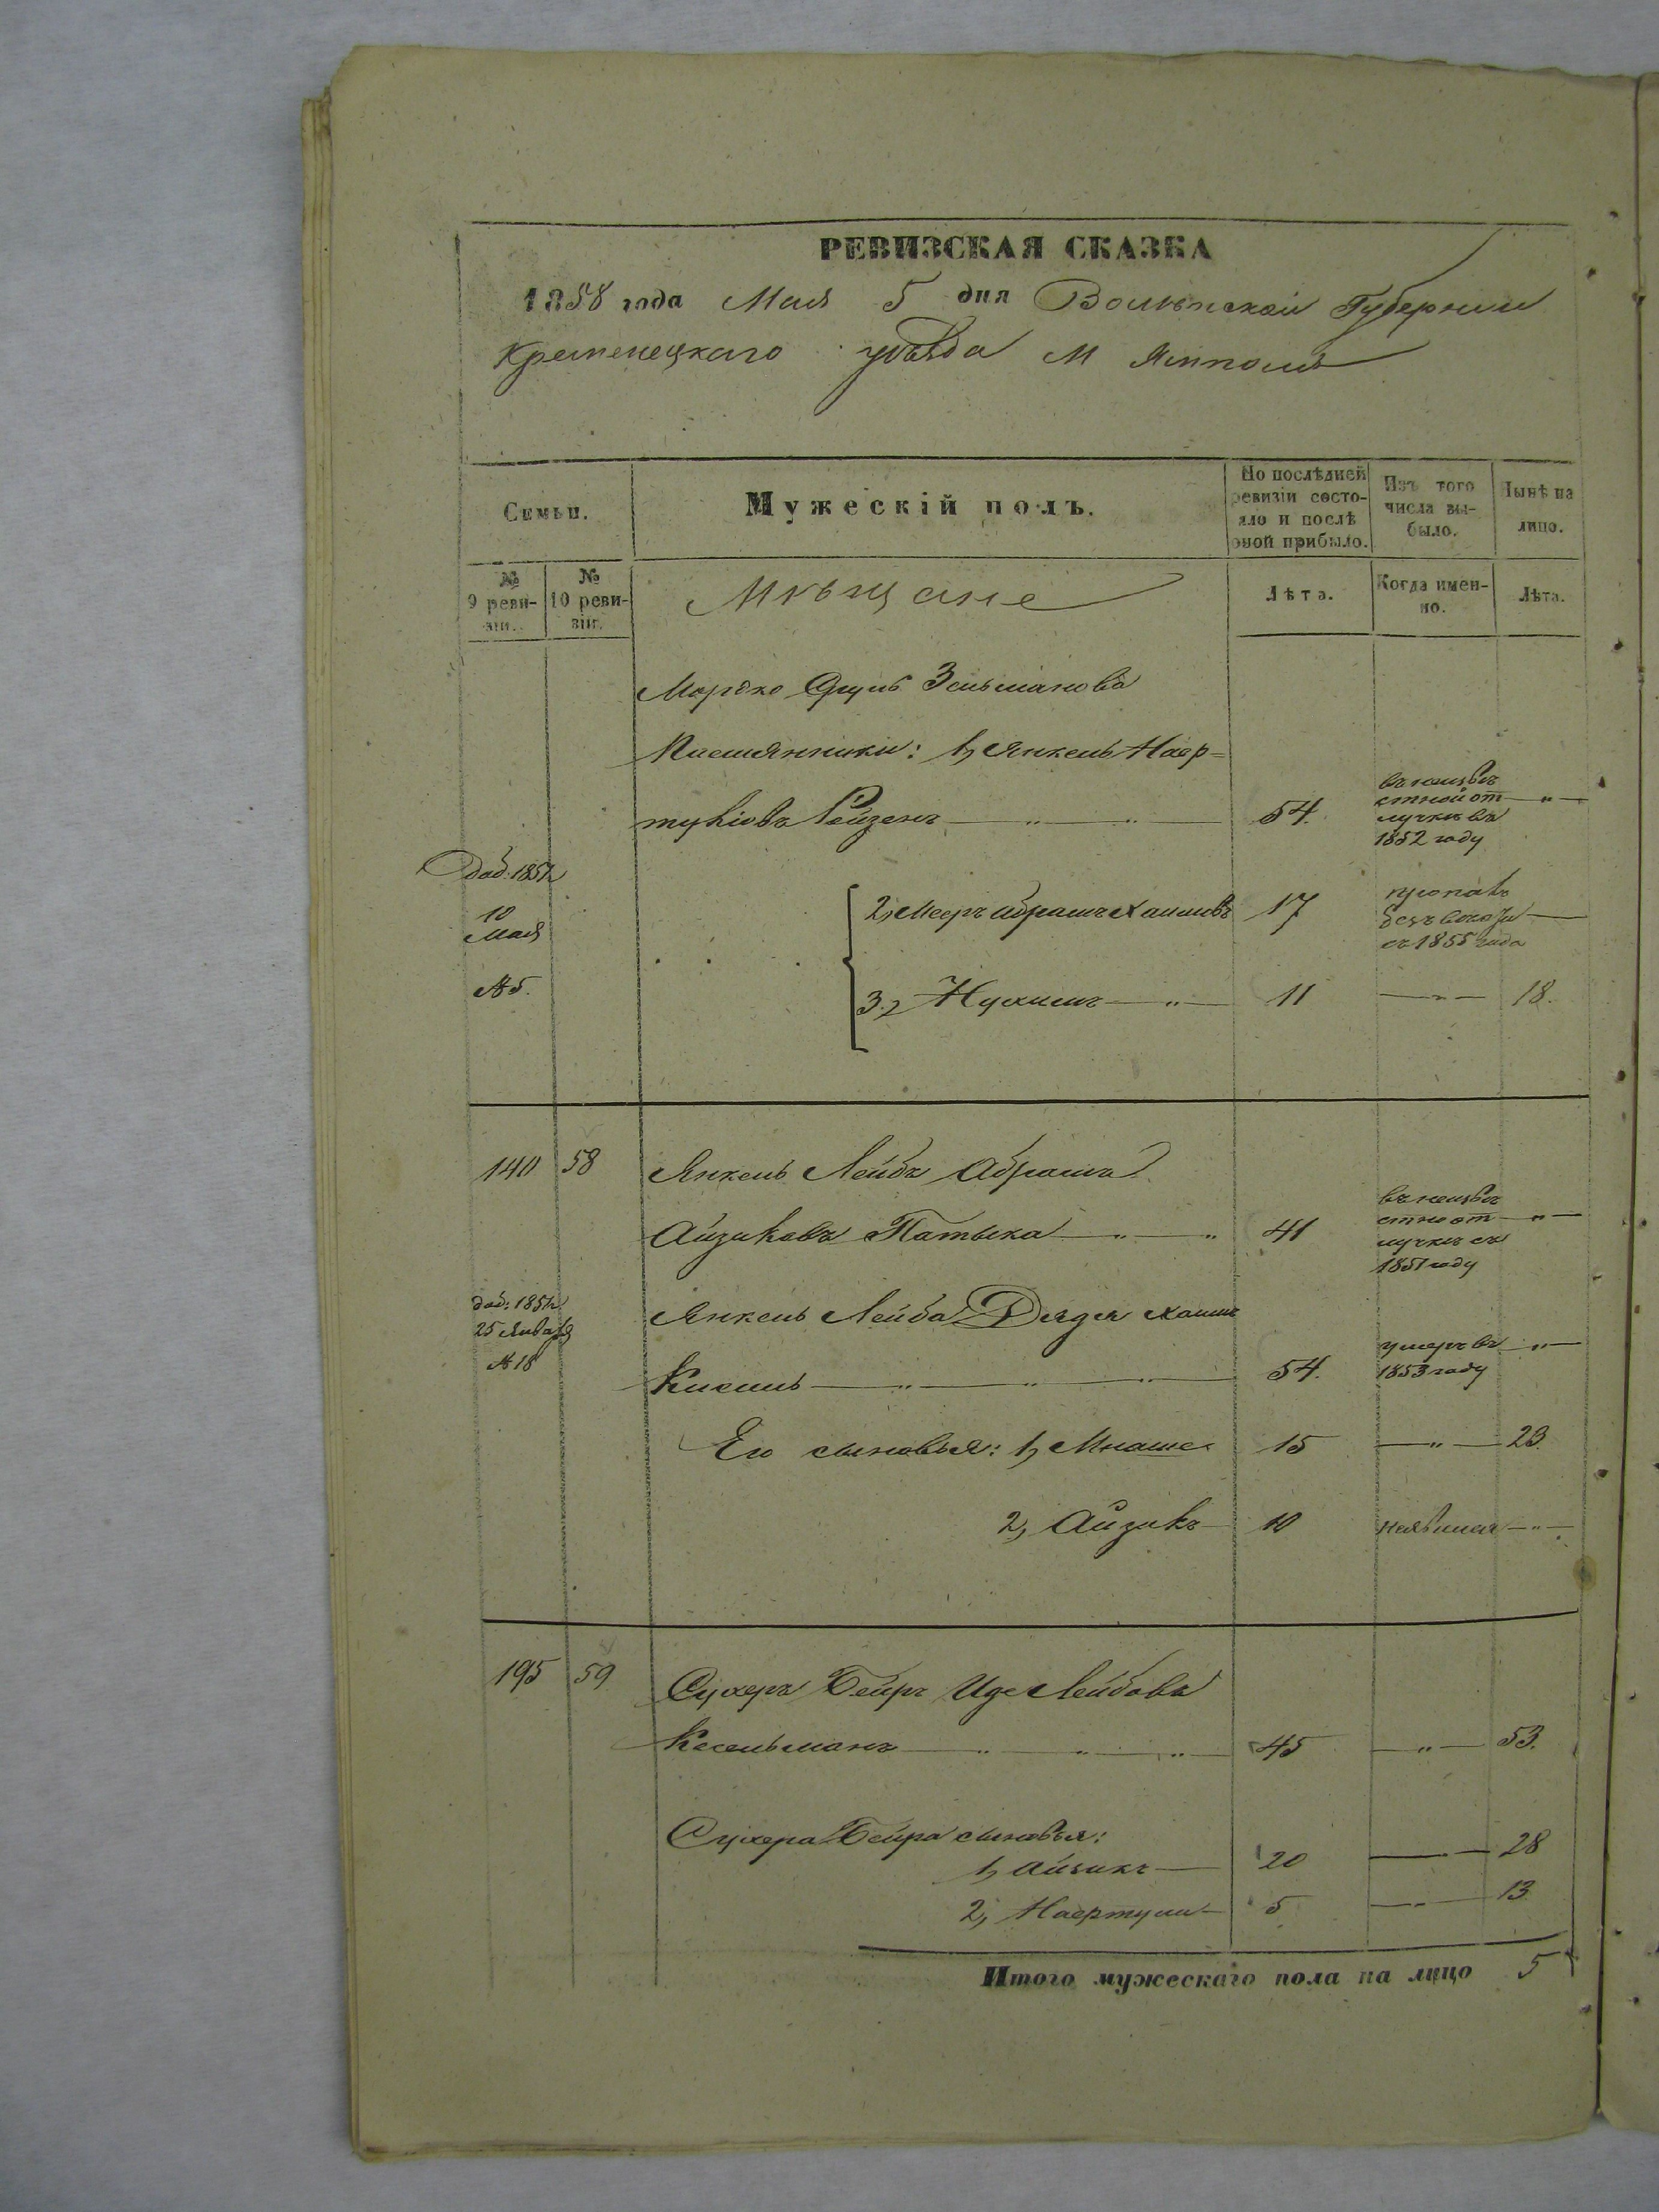 РЕВИЗСКАЯ СКАЗКА
1858 года Мая 5 дня Волынской Губернии
Кременецкаго уѣзда М Ямполь
Семьи.
Мужескій полъ.
По послѣдней ревизіи состояло и послѣ оной прибыло.
Изъ того числа выбыло.
Нынѣ на лицо.
№ 9 ревизіи.
№ 10 ревизіи.
Мѣщане
Лѣта.
Когда именно.
Лѣта.
Мордко Сруль Зельманова
Племянники: 1, Янкель Нафтулiовъ Рейзенъ 54. въ неизвѣстной отлучкѣ въ 1852 году
Доб. 1851
10 Мая
№ 5.
2, Мееръ Абрамъ Хаимовъ 17 пропавъ безъ вести съ 1855 года
3, Нухимъ 11 18.
140 58 Янкель Лейбъ Абрамъ
Айзиковъ Патыка 41 въ неизвѣстно отлучкѣ съ 1851 году
доб: 1851
25 Января
№ 18
Янкель Лейба Дядя Хаимъ
Кисиль 54. умеръ въ 1853 году
Его сыновья: 1, Мнаше 15 23.
2, Айзикъ 10 неявился
195 59 Сухеръ Бейръ Иде Лейбовъ
Кесельманъ 45 53.
Сухера Бейра сыновья:
1, Айзикъ 20 28
2, Нафтули 5 13
Итого мужескаго пола на лицо 5